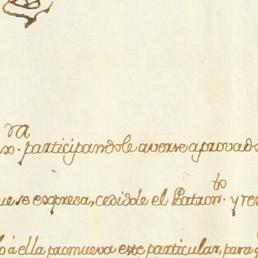 ra
participandole averse aprovad
ue se expresa, cedidole el Patron.to y re
ó á ella promueva este particular, para